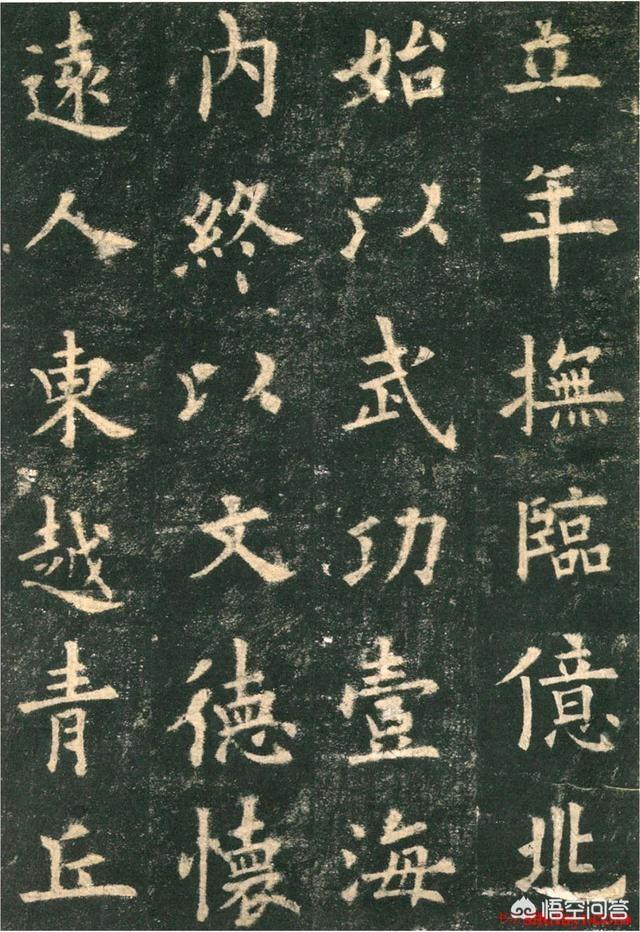 立年撫臨億兆
始以武功壹海
内終以文德懷
遠人東越青丘
悟空问答